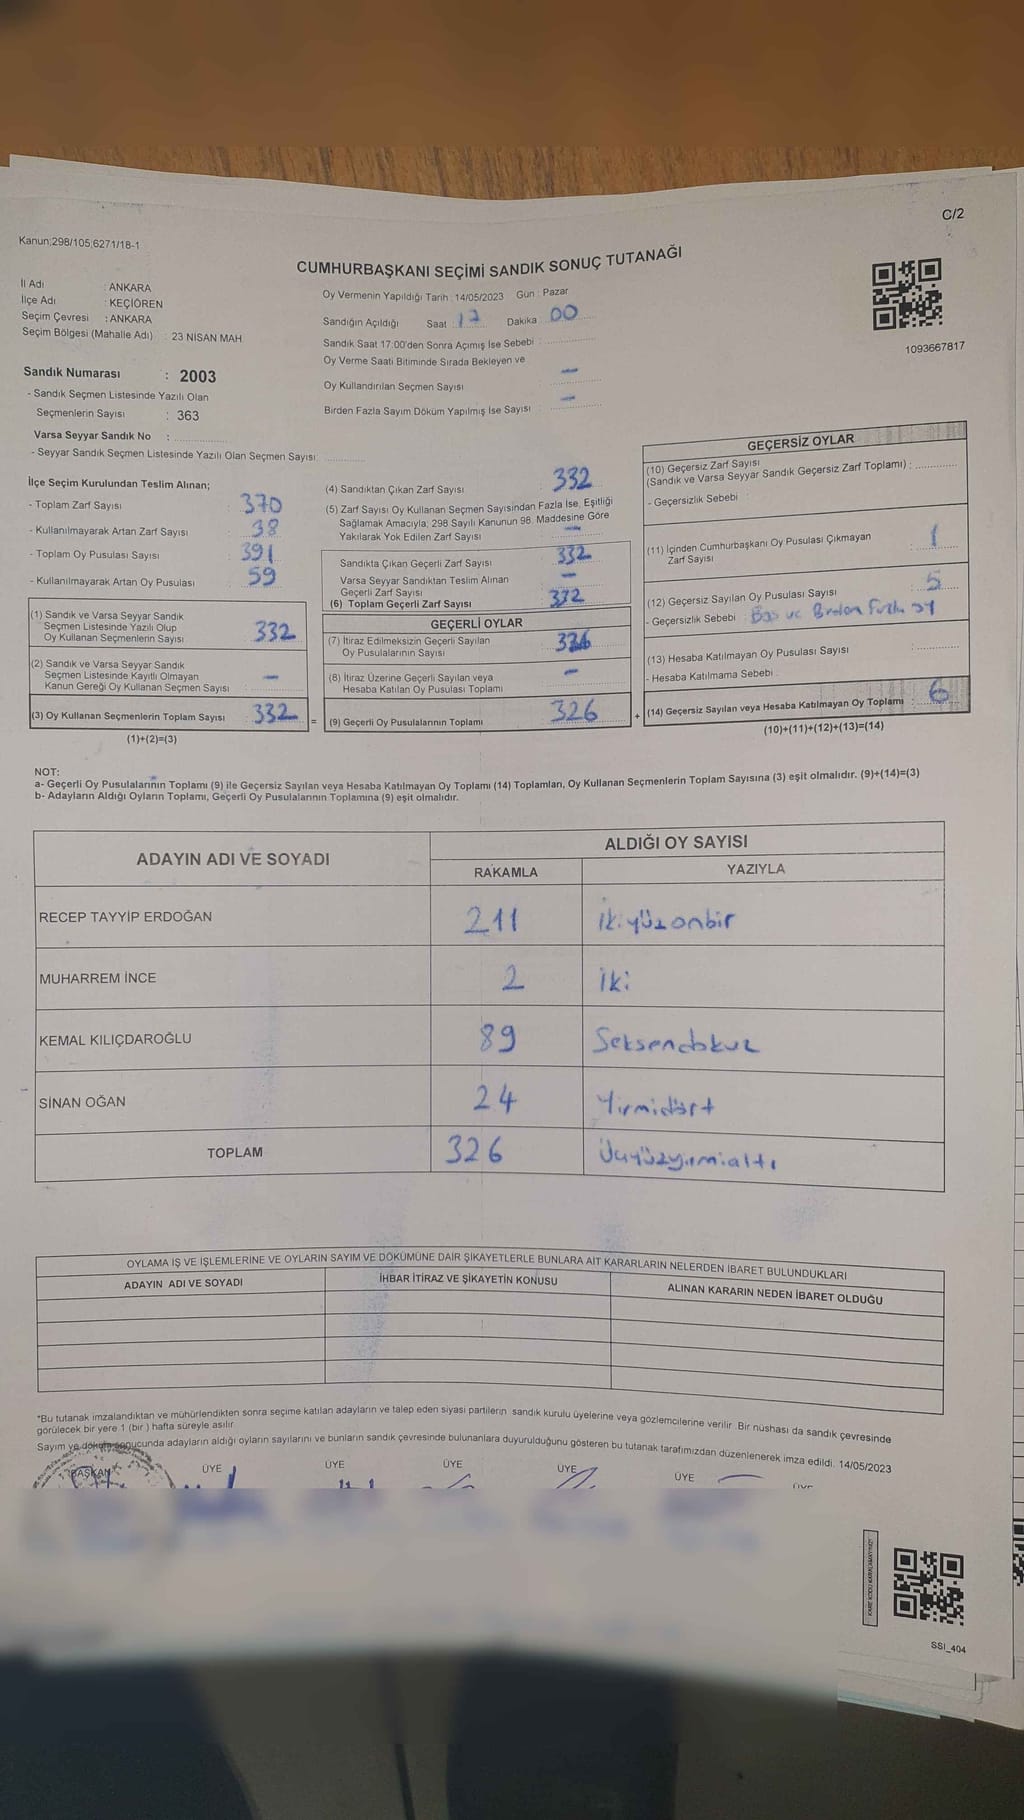 C/2
Kanun;298/105;6271/18-1
CUMHURBAŞKANI SEÇİMİ SANDIK SONUÇ TUTANAĞI
İl Adı : ANKARA
İlçe Adı : KEÇİÖREN
Seçim Çevresi : ANKARA
Seçim Bölgesi (Mahalle Adı) : 23 NİSAN MAH
Sandık Numarası : 2003
- Sandık Seçmen Listesinde Yazılı Olan
Seçmenlerin Sayısı : 363
Varsa Seyyar Sandık No :
- Seyyar Sandık Seçmen Listesinde Yazılı Olan Seçmen Sayısı:
Oy Vermenin Yapıldığı Tarih : 14/05/2023 Gün : Pazar
Sandığın Açıldığı Saat : 17 Dakika : 00
Sandık Saat 17:00'den Sonra Açımış İse Sebebi :
Oy Verme Saati Bitiminde Sırada Bekleyen ve
Oy Kullandırılan Seçmen Sayısı : —
Birden Fazla Sayım Döküm Yapılmış İse Sayısı : —
1093667817
İlçe Seçim Kurulundan Teslim Alınan;
- Toplam Zarf Sayısı : 370
- Kullanılmayarak Artan Zarf Sayısı : 38
- Toplam Oy Pusulası Sayısı : 391
- Kullanılmayarak Artan Oy Pusulası : 59
(1) Sandık ve Varsa Seyyar Sandık
Seçmen Listesinde Yazılı Olup
Oy Kullanan Seçmenlerin Sayısı : 332
(2) Sandık ve Varsa Seyyar Sandık
Seçmen Listesinde Kayıtlı Olmayan
Kanun Gereği Oy Kullanan Seçmen Sayısı : —
(3) Oy Kullanan Seçmenlerin Toplam Sayısı : 332
(1)+(2)=(3)
(4) Sandıktan Çıkan Zarf Sayısı : 332
(5) Zarf Sayısı Oy Kullanan Seçmen Sayısından Fazla İse, Eşitliği
Sağlamak Amacıyla; 298 Sayılı Kanunun 98. Maddesine Göre
Yakılarak Yok Edilen Zarf Sayısı : —
Sandıkta Çıkan Geçerli Zarf Sayısı : 332
Varsa Seyyar Sandıktan Teslim Alınan
Geçerli Zarf Sayısı : —
(6) Toplam Geçerli Zarf Sayısı : 332
GEÇERLİ OYLAR
(7) İtiraz Edilmeksizin Geçerli Sayılan
Oy Pusulalarının Sayısı : 326
(8) İtiraz Üzerine Geçerli Sayılan veya
Hesaba Katılan Oy Pusulası Toplamı : —
= (9) Geçerli Oy Pusulalarının Toplamı : 326
GEÇERSİZ OYLAR
(10) Geçersiz Zarf Sayısı
(Sandık ve Varsa Seyyar Sandık Geçersiz Zarf Toplamı) :
- Geçersizlik Sebebi :
(11) İçinden Cumhurbaşkanı Oy Pusulası Çıkmayan
Zarf Sayısı : 1
(12) Geçersiz Sayılan Oy Pusulası Sayısı : 5
- Geçersizlik Sebebi : Boş ve Birden Fazla oy
(13) Hesaba Katılmayan Oy Pusulası Sayısı :
- Hesaba Katılmama Sebebi :
+ (14) Geçersiz Sayılan veya Hesaba Katılmayan Oy Toplamı : 6
(10)+(11)+(12)+(13)=(14)
NOT:
a- Geçerli Oy Pusulalarının Toplamı (9) ile Geçersiz Sayılan veya Hesaba Katılmayan Oy Toplamı (14) Toplamları, Oy Kullanan Seçmenlerin Toplam Sayısına (3) eşit olmalıdır. (9)+(14)=(3)
b- Adayların Aldığı Oyların Toplamı, Geçerli Oy Pusulalarının Toplamına (9) eşit olmalıdır.
ADAYIN ADI VE SOYADI
ALDIĞI OY SAYISI
RAKAMLA YAZIYLA
RECEP TAYYİP ERDOĞAN 211 ikiyüzonbir
MUHARREM İNCE 2 iki
KEMAL KILIÇDAROĞLU 89 Seksendokuz
SİNAN OĞAN 24 Yirmidört
TOPLAM 326 Üçyüzyirmialtı
OYLAMA İŞ VE İŞLEMLERİNE VE OYLARIN SAYIM VE DÖKÜMÜNE DAİR ŞİKAYETLERLE BUNLARA AİT KARARLARIN NELERDEN İBARET BULUNDUKLARI
ADAYIN ADI VE SOYADI İHBAR İTİRAZ VE ŞİKAYETİN KONUSU ALINAN KARARIN NEDEN İBARET OLDUĞU
*Bu tutanak imzalandıktan ve mühürlendikten sonra seçime katılan adayların ve talep eden siyasi partilerin sandık kurulu üyelerine veya gözlemcilerine verilir. Bir nüshası da sandık çevresinde
görülecek bir yere 1 (bir) hafta süreyle asılır.
Sayım ve döküm sonucunda adayların aldığı oyların sayılarını ve bunların sandık çevresinde bulunanlara duyurulduğunu gösteren bu tutanak tarafımızdan düzenlenerek imza edildi. 14/05/2023
BAŞKAN ÜYE ÜYE ÜYE ÜYE ÜYE
KARE KODU KARALAMAYINIZ!
SSI_404